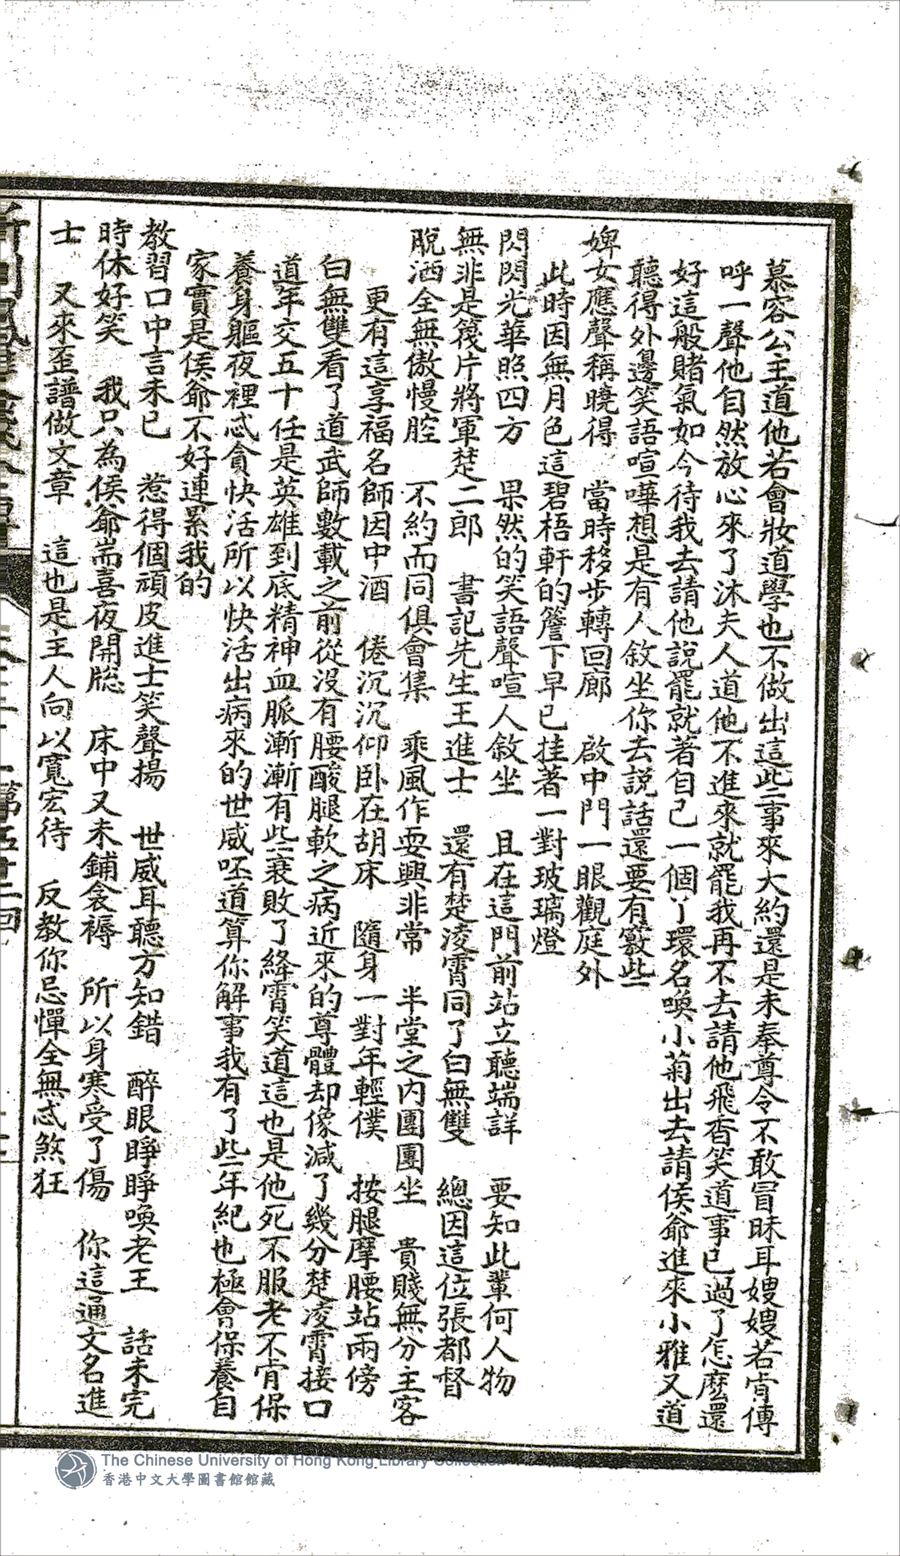 慕容公主道他若會妝道學也不做出這些事來大約還是未奉尊令不敢冒昧耳嫂嫂若肯傳
呼一聲他自然放心來了沐夫人道他不進來就罷我再不去請他飛香笑道事已過了怎麽還
好這般賭氣如今待我去請他説罷就著自己一個丫環名喚小菊出去請侯爺進來小雅又道
聽得外邊笑語喧嘩想是有人敘坐你去説話還要有藪些
婢女應聲稱曉得　當時移步轉回廊　啟中門一眼觀庭外
此時因無月色這碧梧軒的簷下早已挂著一對玻璃燈
閃閃光華照四方　果然的笑語聲喧人敘坐　且在這門前站立聽端詳　要知此輩何人物
無非是篾片將軍楚二郎　書記先生王進士　還有楚淩霄同了白無雙　總因這位張都督
脫洒全無傲慢腔　不約而同俱會集　乘風作耍興非常　半堂之內團團坐　貴賤無分主客
更有這享福名師因中酒　倦沉沉仰卧在胡床　隨身一對年輕僕　按腿摩腰站兩傍
白無雙看了道武師數載之前從没有腰酸腿軟之病近來的尊體却像減了幾分楚凌霄接口
道年交五十任是英雄到底精神血脈漸漸有些衰敗了絳霄笑道這也是他死不服老不肯保
養身軀夜裡忒貪快活所以快活出病來的世威呸道算你解事我有了些年紀也極會保養自
家實是侯爺不好連累我的
教習口中言未已　惹得個頑皮進士笑聲揚　世威耳聽方知錯　醉眼睜睜喚老王　話未完
時休好笑　我只為侯爺耑喜夜開牎　床中又未鋪衾褥　所以身寒受了傷　你這通文名進
士　又來歪譜做文章　這也是主人向以寬宏待　反教你忌憚全無忒煞狂
第五十二回
The Chinese University of Hong Kong Library Collection
香港中文大學圖書館館藏